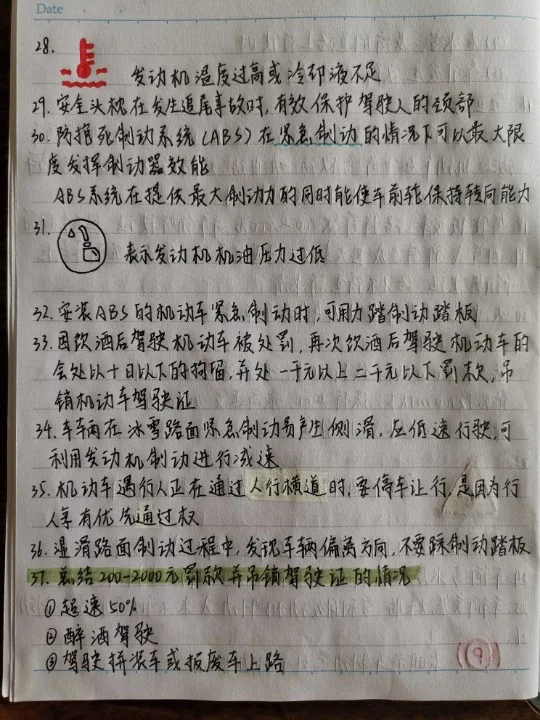 Date
28.
发动机温度过高或冷却液不足
29. 安全头枕在发生追尾事故时,有效保护驾驶人的颈部
30. 防抱死制动系统(ABS)在紧急制动的情况下可以最大限
度发挥制动器效能
ABS系统在提供最大制动力的同时能使车前轮保持转向能力
31.
表示发动机机油压力过低
32. 安装ABS的机动车紧急制动时,可用力踏制动踏板
33. 因饮酒后驾驶机动车被处罚,再次饮酒后驾驶机动车的
会处以十日以下的拘留,并处一千元以上二千元以下罚款,吊
销机动车驾驶证
34. 车辆在冰雪路面紧急制动易产生侧滑,应低速行驶,可
利用发动机制动进行减速
35. 机动车遇行人正在通过人行横道时,要停车让行,是因为行
人享有优先通过权
36. 湿滑路面制动过程中,发现车辆偏离方向,不要踩制动踏板
37. 总结200-2000元罚款并吊销驾驶证的情况
①超速50%
②醉酒驾驶
③驾驶拼装车或报废车上路
(9)